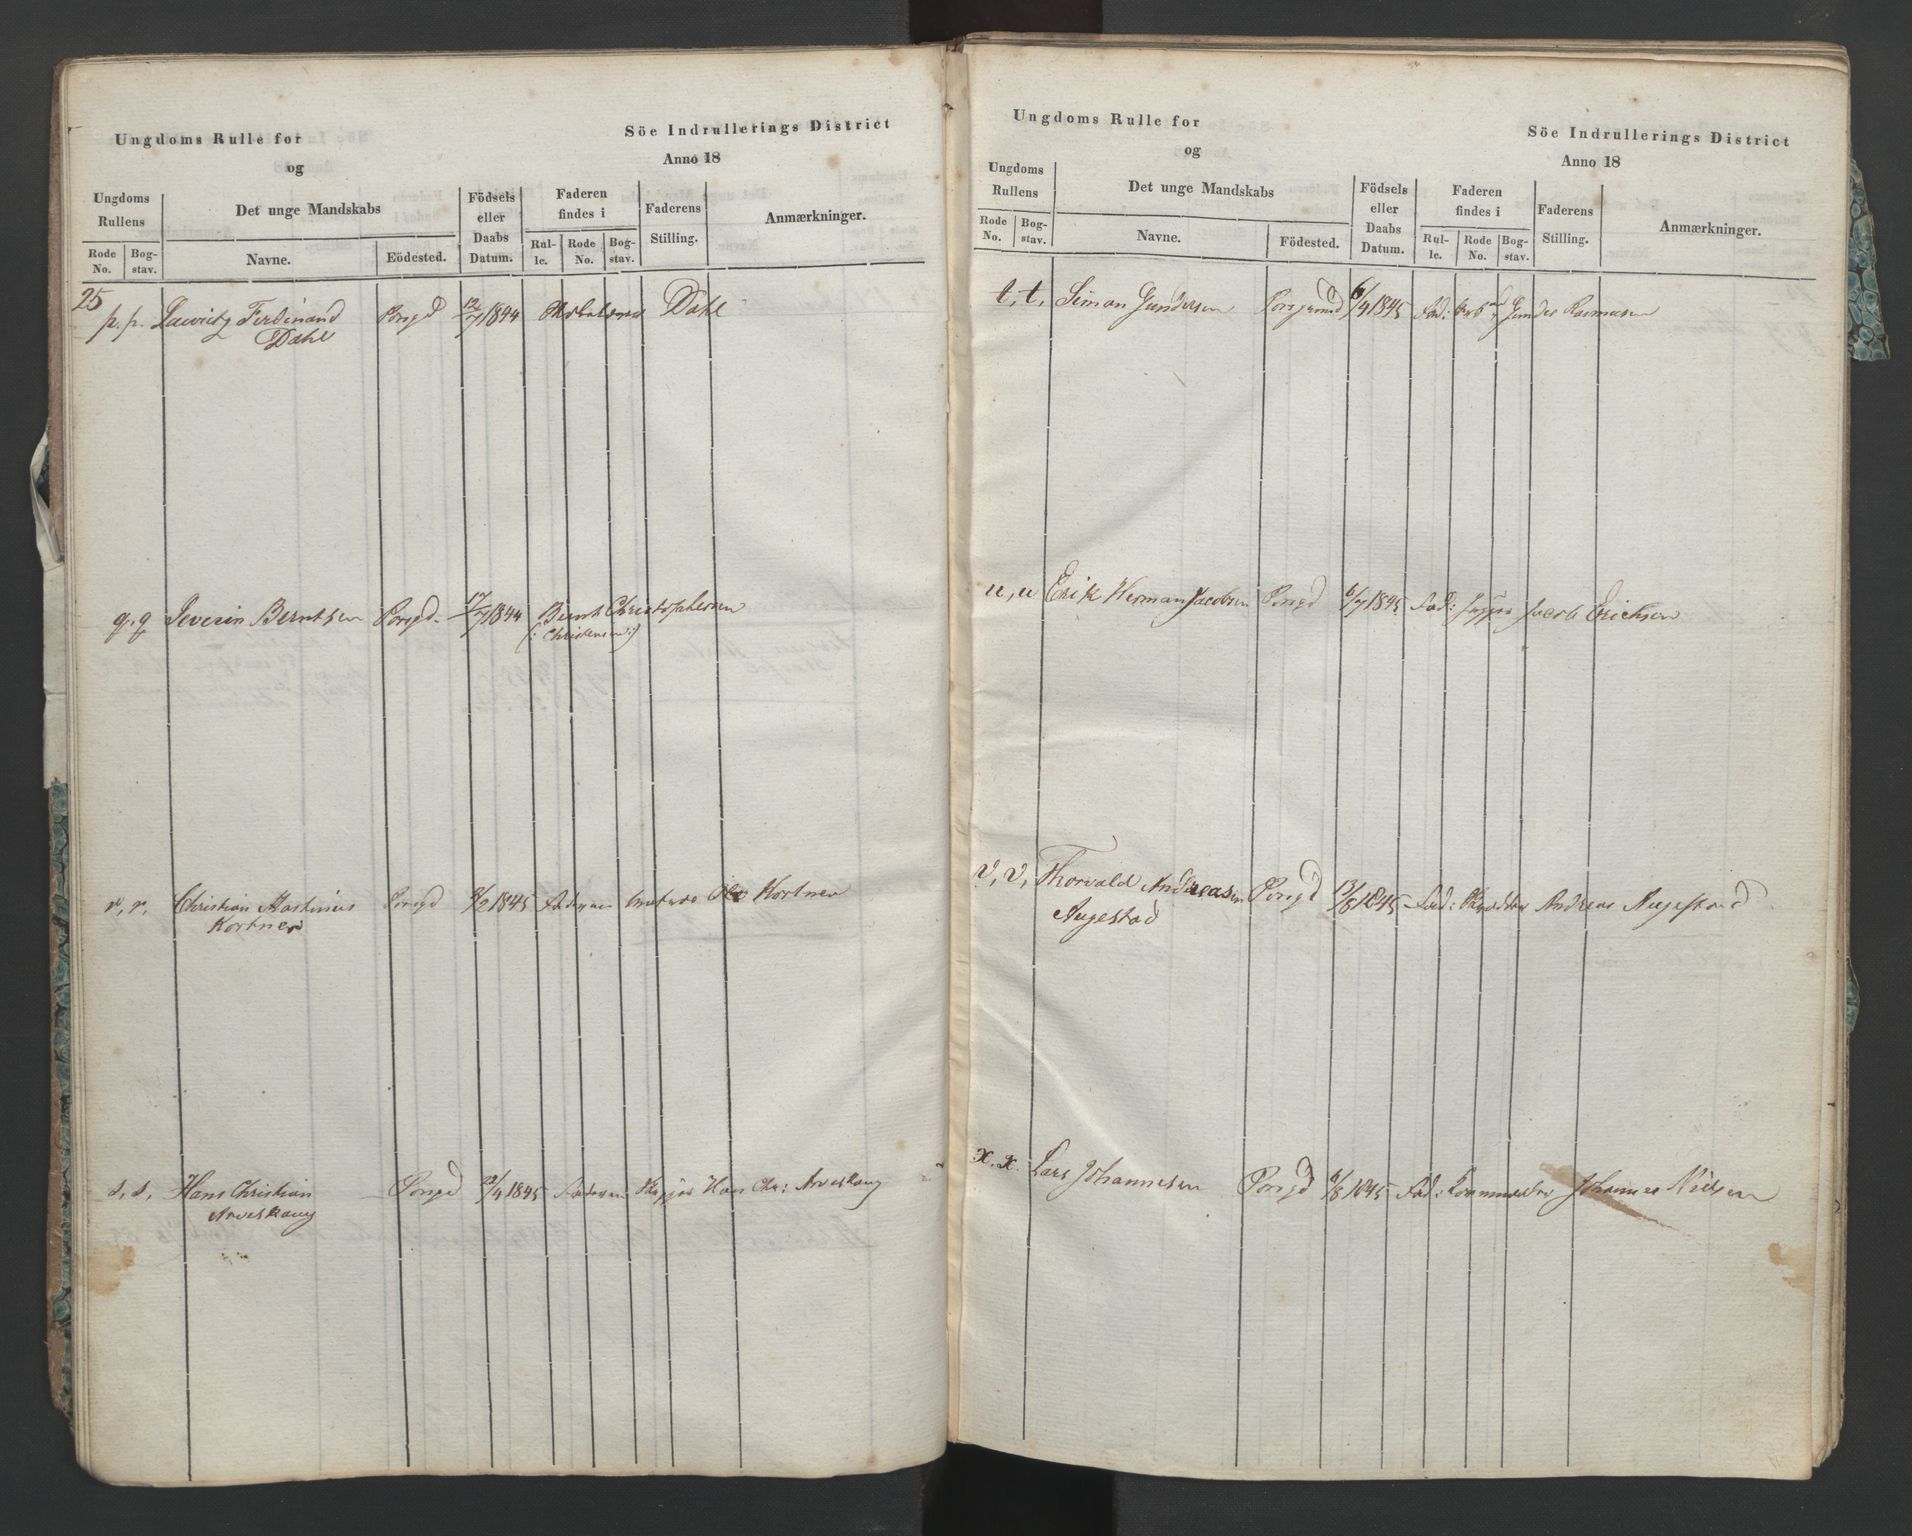 Ungdoms Rulle for
og
Söe Indrullerings District
Anno 18
Ungdoms Rullens
Det unge Mandskabs
Födsels eller Daabs Datum.
Faderen findes i
Faderens Stilling.
Anmærkninger.
Rode No.
Bog-stav.
Navne.
Eödested.
Rul-le.
Rode No.
Bog-stav.
25
p. p. Lauritz Ferdinand Porsgd 12/7 1844 Dahl
Dahl
q. q Severin Berntsen Porsgd. 17/7 1844 Bernt Christophersen
(: Christensen :)
r, r, Christian Martinius Porsgd 9/2 1845 Faderen Ole Kortner
Kortner
s, s, Hans Christian Porsgd 12/4 1845 Faderen Hans Chr: Arveskoug
Arveskoug
Ungdoms Rulle for
og
Söe Indrullerings District
Anno 18
Ungdoms Rullens
Det unge Mandskabs
Födsels eller Daabs Datum.
Faderen findes i
Faderens Stilling.
Anmærkninger.
Rode No.
Bog-stav.
Navne.
Födested.
Rul-le.
Rode No.
Bog-stav.
t, t, Simon Gundersen Porsgrund 6/4 1845 Fad: Gunder Rasmusen
u, u Erik Herman Jacobsen Porsgd 6/7 1845 Fad: Jacob Ericksen
v, v, Thorvald Andreasen Porsgd 13/8 1845 Fad: Andreas Augestad
Augestad
x. x. Lars Johannesen Porsgd 6/8 1845 Fad: Johannes Nielsen